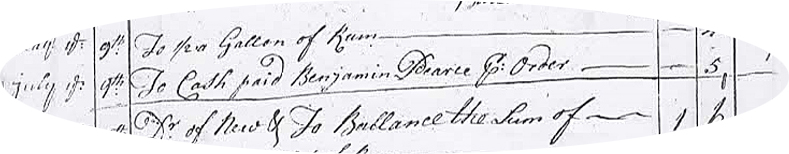 9th To 1/2 a Gallon of Rum
July 9th To Cash paid Benjamin Pearce pr Order 5
of New To Ballance the Sum of